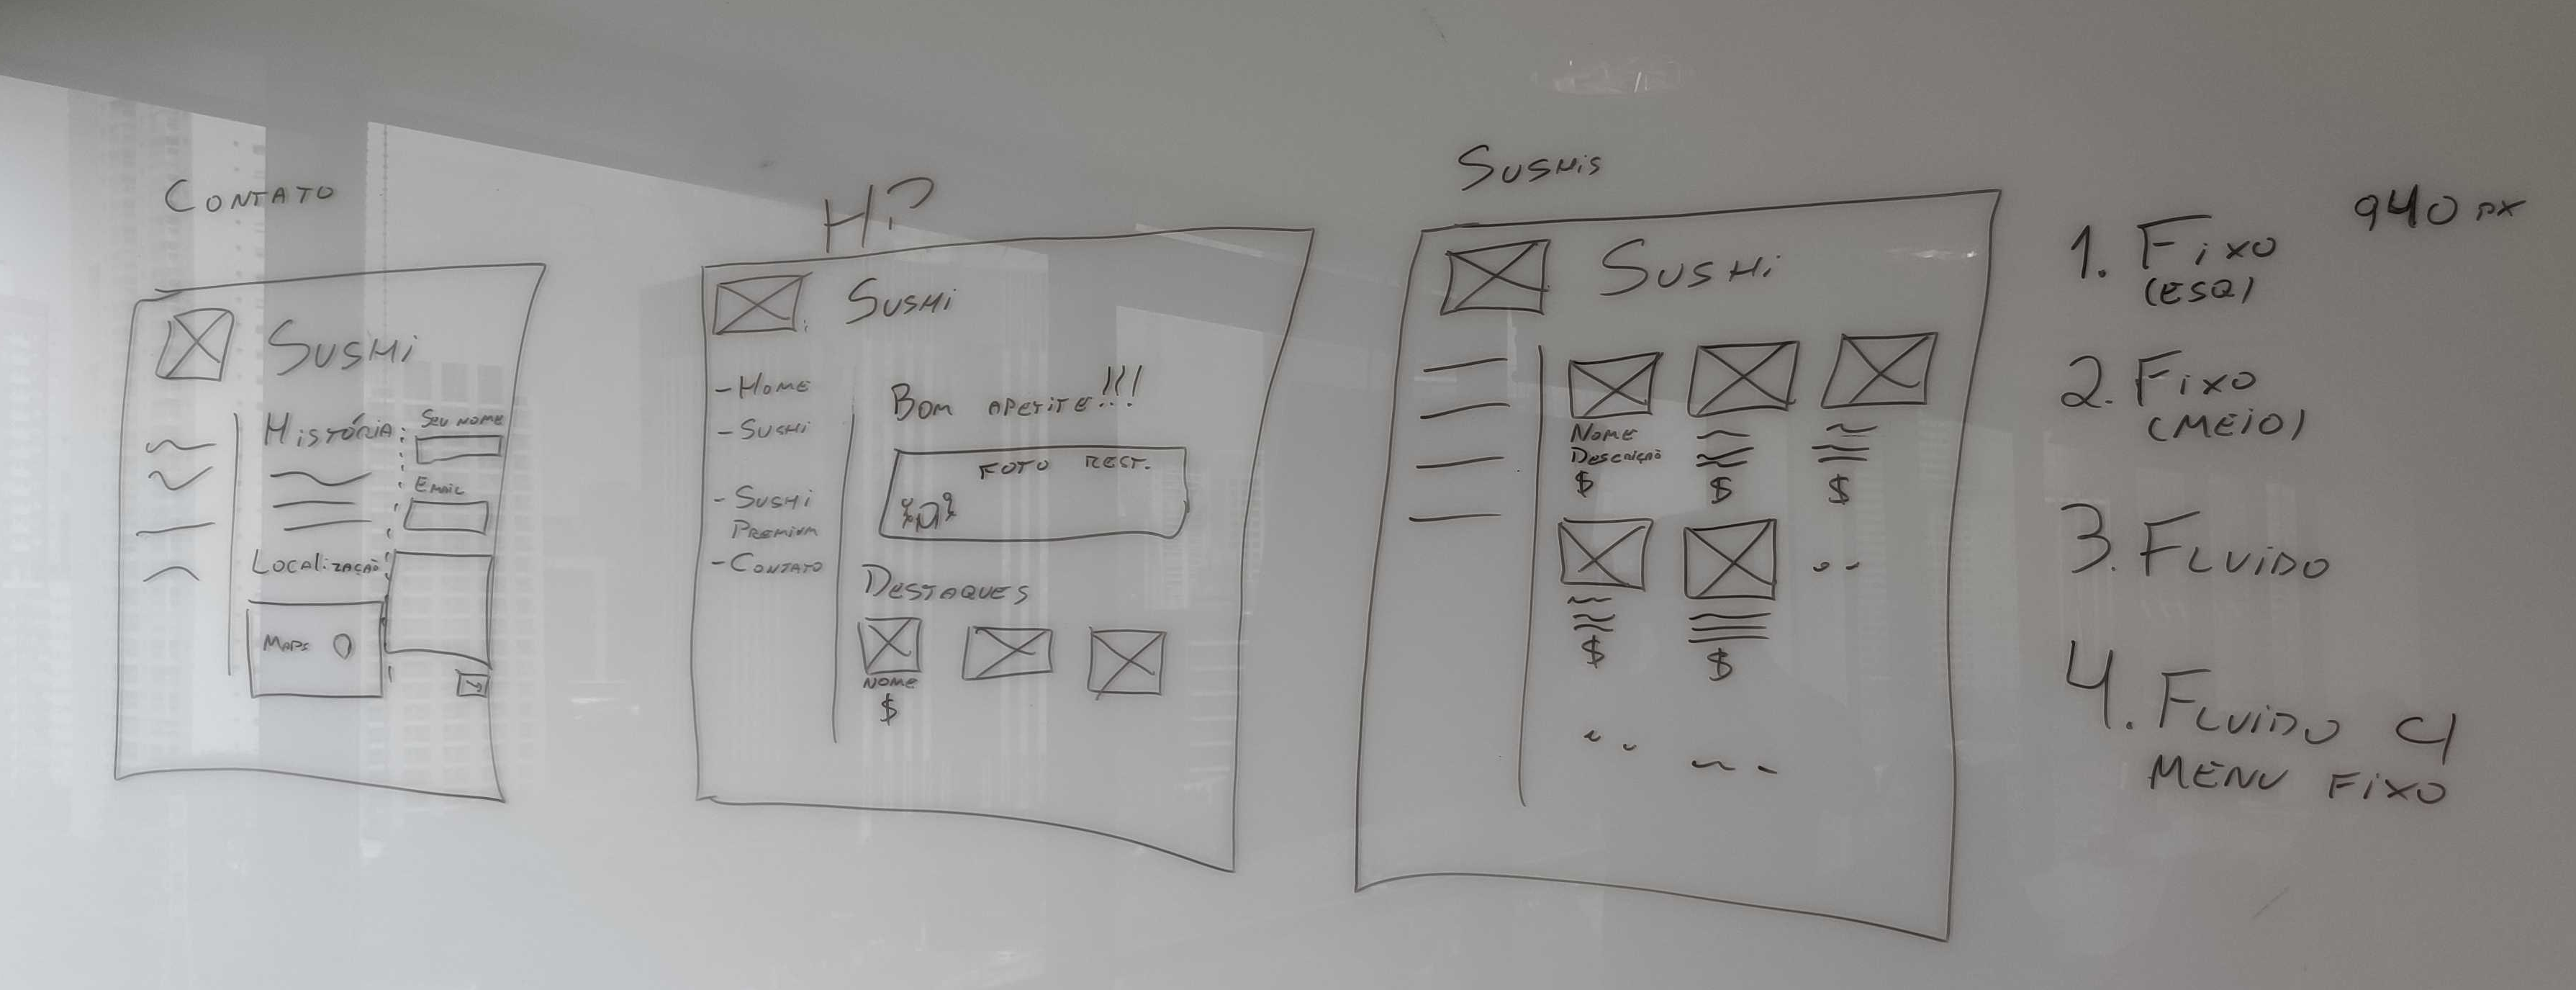 CONTATO
SUSHi
HiSTÓRiA
SEU NOME
EMAIL
LOCALiZAÇÃO
MAPS
HP
SUSHi
- HOME
- SUSHi
- SUSHi
PREMIUM
- CONTATO
BOM APETITE!!!
FOTO REST.
DESTAQUES
NOME
$
SUSHiS
SUSHi
NOME
DESCRIÇÃO
$
$
$
$
$
940 PX
1. FiXO
(ESQ)
2. FiXO
(MEiO)
3. FLUiDO
4. FLUiDO C/
MENU FiXO